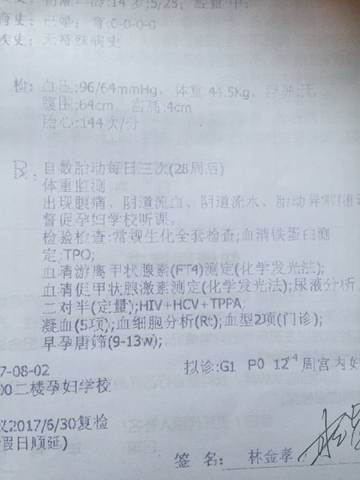 14岁;5/28,
婚史:已婚, 育:0-0-0-0
检: 血压:96/64mmHg, 体重 44.5Kg, 浮肿:无
腹围:64cm, 宫高:4cm
胎心:144次/分
R: 自数胎动每日三次(28周后)
体重监测
出现腹痛、阴道流血、阴道流水、胎动异常随诊
督促孕妇学校听课。
检验检查:常规生化全套检查;血清铁蛋白测
定;TPO;
血清游离甲状腺素(FT4)测定(化学发光法);
血清促甲状腺激素测定(化学发光法);尿液分析
二对半(定量);HIV+HCV+TPPA
凝血(5项);血细胞分析(Rt);血型2项(门诊);
早孕唐筛(9-13w);
7-08-02 拟诊:G1 P0 12⁺⁴周宫内妊
00二楼孕妇学校
议2017/6/30复检
假日顺延)
签 名: 林金孝